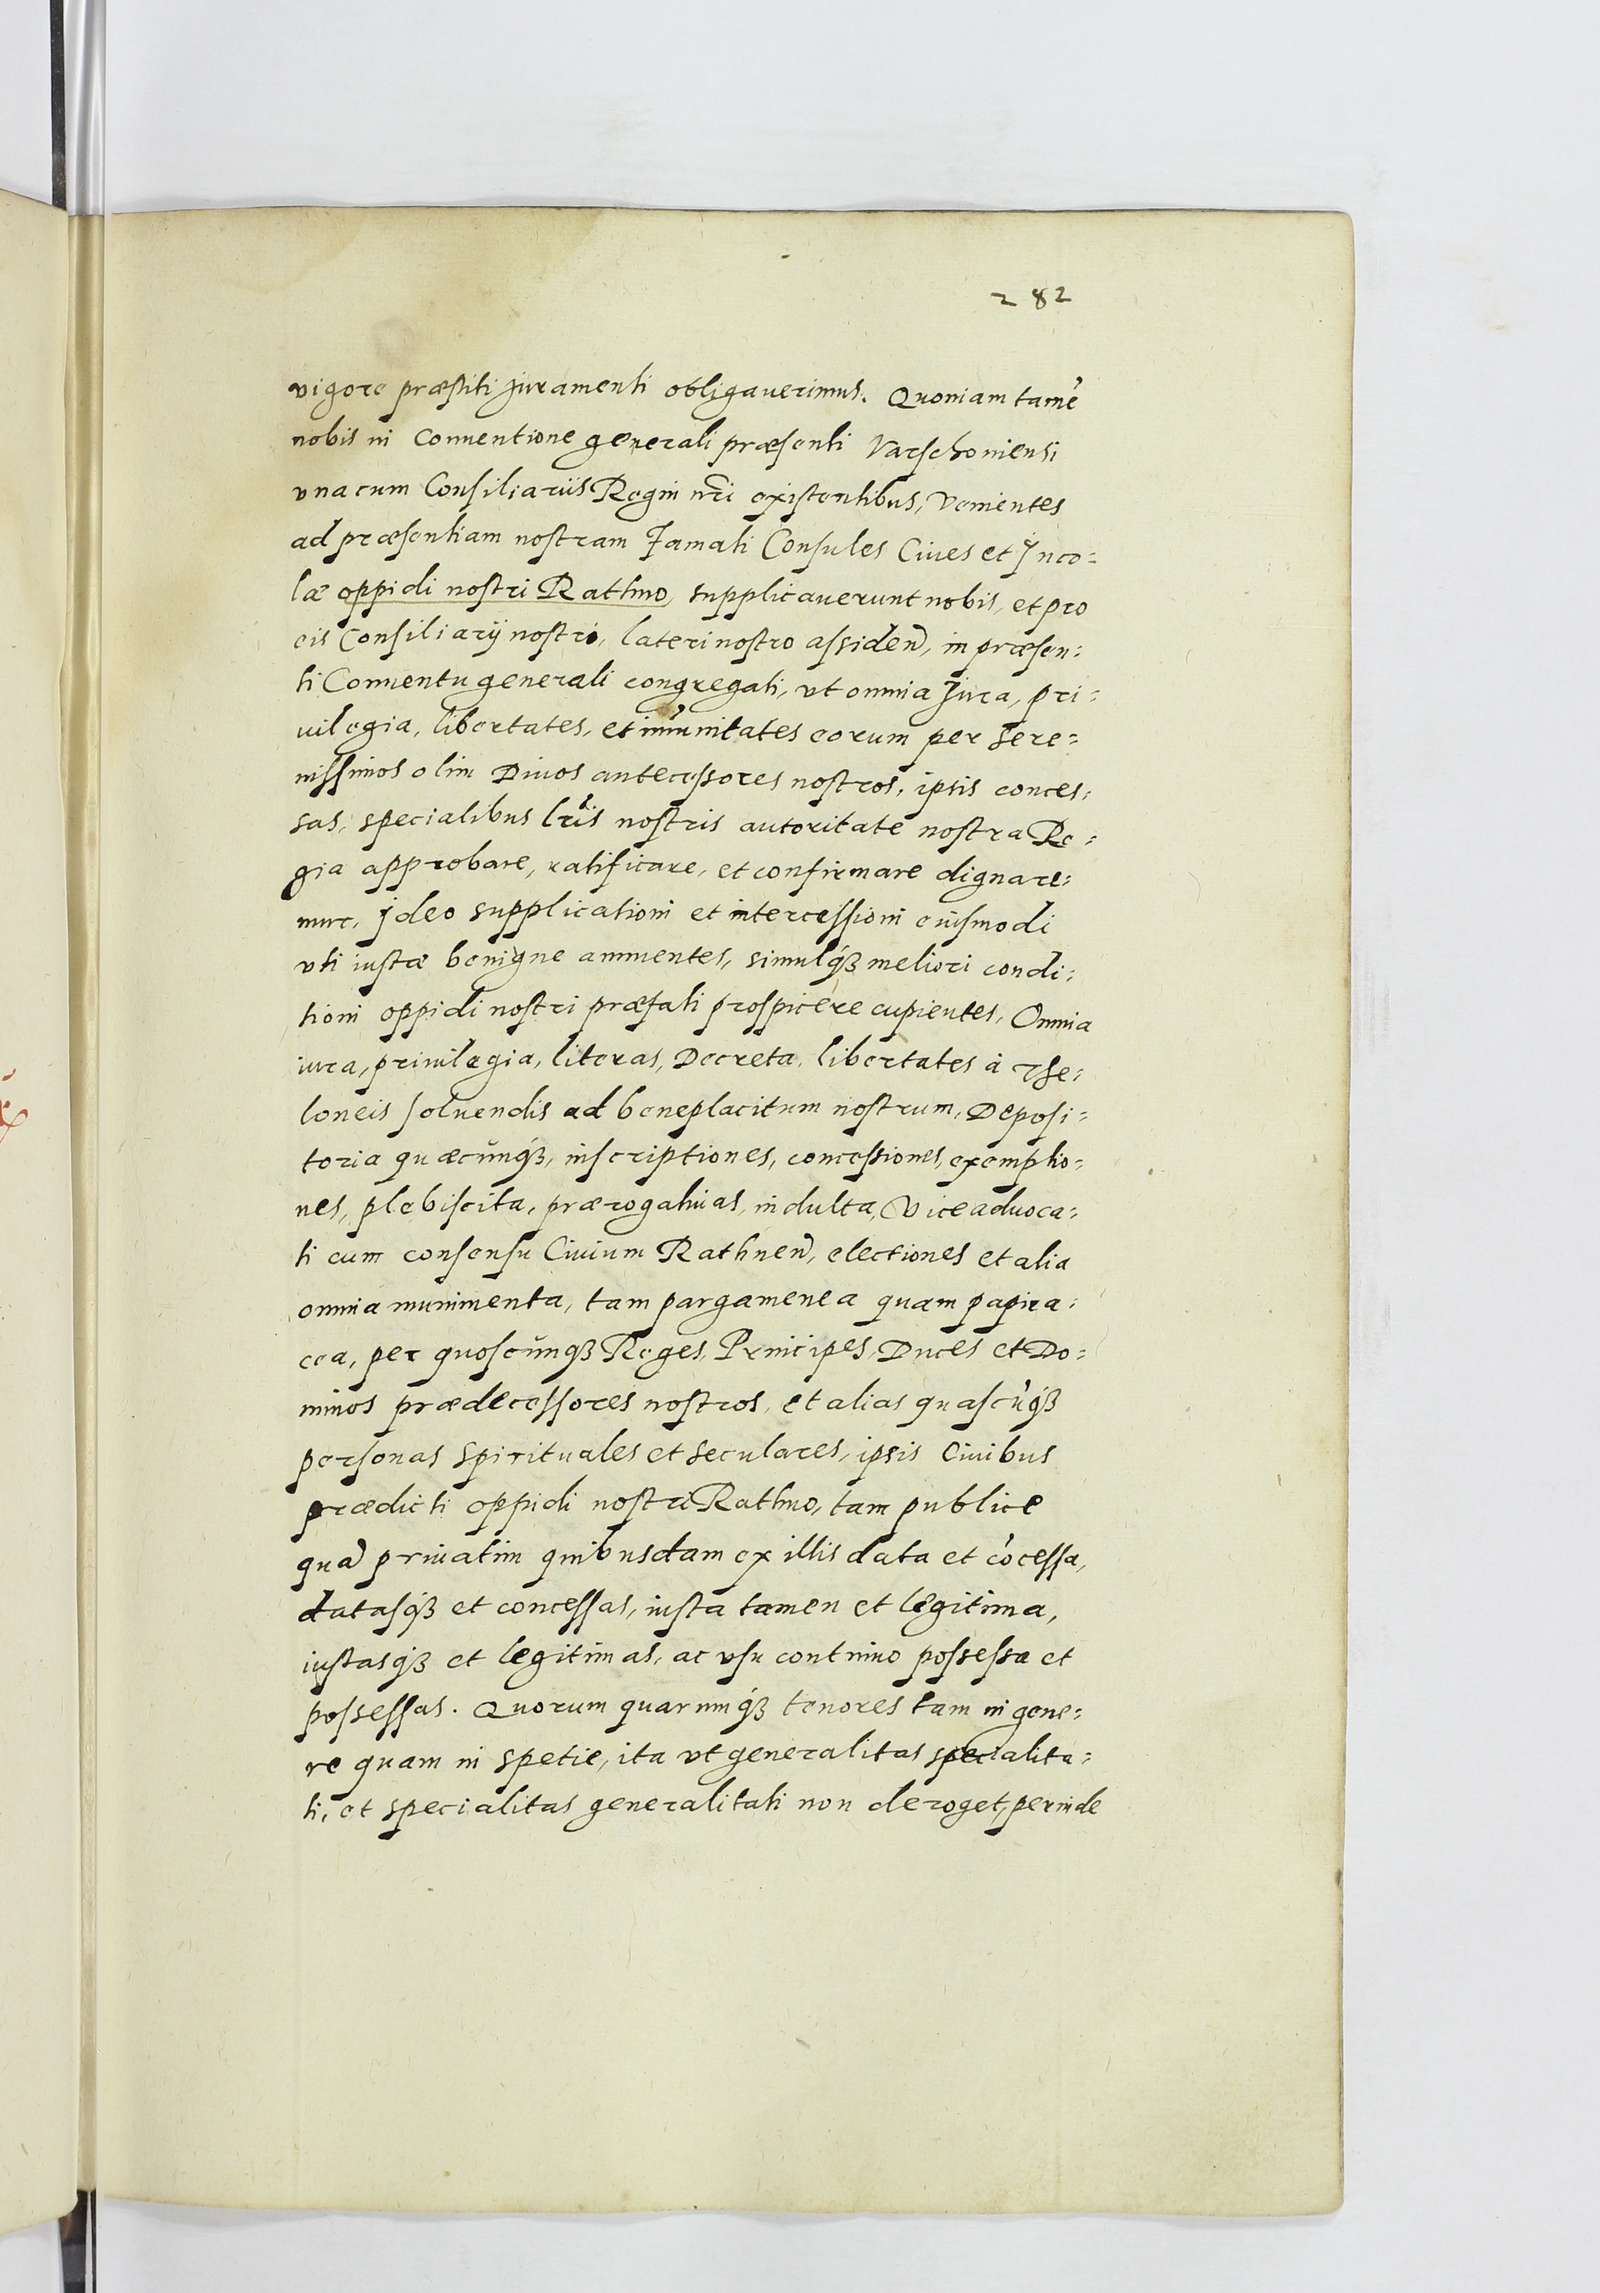 282
vigore præstiti juramenti obligauerimus. Quoniam tamē
nobis in Conuentione generali præsenti Varschouiensi
vna cum Consiliariis Regni nr̃i existentibus, Venientes
ad præsentiam nostram Famati Consules Ciues et Inco=
læ oppidi nostri Rathno, supplicauerunt nobis, et pro
eis Consiliarij nostri, lateri nostro assideñ, in præsen=
ti Conuentu generali congregati, vt omnia Jura, pri=
uilegia, libertates, et im̃unitates eorum per Sere=
nissimos olim Diuos antecessores nostros, ipsis conces=
sas, specialibus lr̃is nostris autoritate nostra Re=
gia approbare, ratificare, et confirmare dignare=
mur, Ideo supplicationi et intercessioni eiusmodi
vti iustæ benigne annuentes, simulq́ꝫ meliori condi=
tioni oppidi nostri præfati prospicere cupientes, Omnia
iura, priuilegia, literas, Decreta, libertates à The=
loneis soluendis ad beneplacitum nostrum, Deposi=
toria quæcŭnq́ꝫ, inscriptiones, concessiones, exemptio=
nes, plebiscita, prærogatiuas, indulta, Viceaduoca=
ti cum consensu Ciuium Rathneñ, electiones et alia
omnia munimenta, tam pargamenea quam papira=
cea, per quoscŭnq́ꝫ Reges, Principes, Duces et Do=
minos prædecessores nostros, et alias quascūq́ꝫ
personas spirituales et seculares, ipsis Ciuibus
prædicti oppidi nostri Rathno, tam publice
quã priuatim quibusdam ex illis data et cōcessa,
datasq́ꝫ et concessas, iusta tamen et legitima,
iustasq́ꝫ et legitimas, ac vsu continuo possessa et
possessas. Quorum quarumq́ꝫ tenores tam in gene=
re quam in spetie, ita vt generalitas specialita=
ti, et specialitas generalitati non deroget, perinde